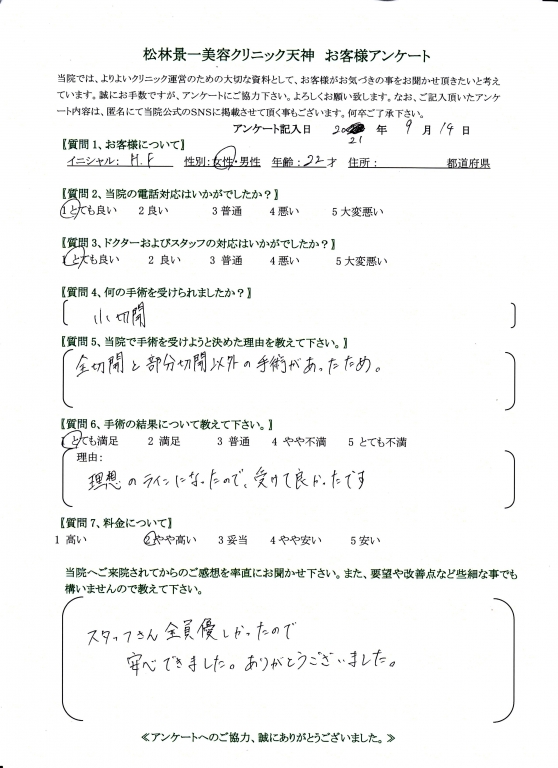 松林景一美容クリニック天神 お客様アンケート
当院では、よりよいクリニック運営のための大切な資料として、お客様がお気づきの事をお聞かせ頂きたいと考え
ています。誠にお手数ですが、アンケートにご協力下さい。よろしくお願い致します。なお、ご記入頂いたアンケ
ート内容は、匿名にて当院公式のSNSに掲載させて頂く事もございます。何卒ご了承下さい。
アンケート記入日 20 21 年 9 月 14 日
【質問1、お客様について】
イニシャル: H.F 性別:女性・男性 年齢:22才 住所: 都道府県
【質問2、当院の電話対応はいかがでしたか?】
1とても良い 2良い 3普通 4悪い 5大変悪い
【質問3、ドクターおよびスタッフの対応はいかがでしたか?】
1とても良い 2 良い 3 普通 4悪い 5大変悪い
【質問4、何の手術を受けられましたか?】
小切開
【質問5、当院で手術を受けようと決めた理由を教えて下さい。】
全切開と部分切開以外の手術があったため。
【質問6、手術の結果について教えて下さい。】
1 とても満足 2 満足 3 普通 4 やや不満 5 とても不満
理由:
理想のラインになったので、受けて良かったです
【質問7、料金について】
1 高い 2やや高い 3妥当 4やや安い 5安い
当院へご来院されてからのご感想を率直にお聞かせ下さい。また、要望や改善点など些細な事でも
構いませんので教えて下さい。
スタッフさん全員優しかったので
安心できました。ありがとうございました。
≪アンケートへのご協力、誠にありがとうございました。≫